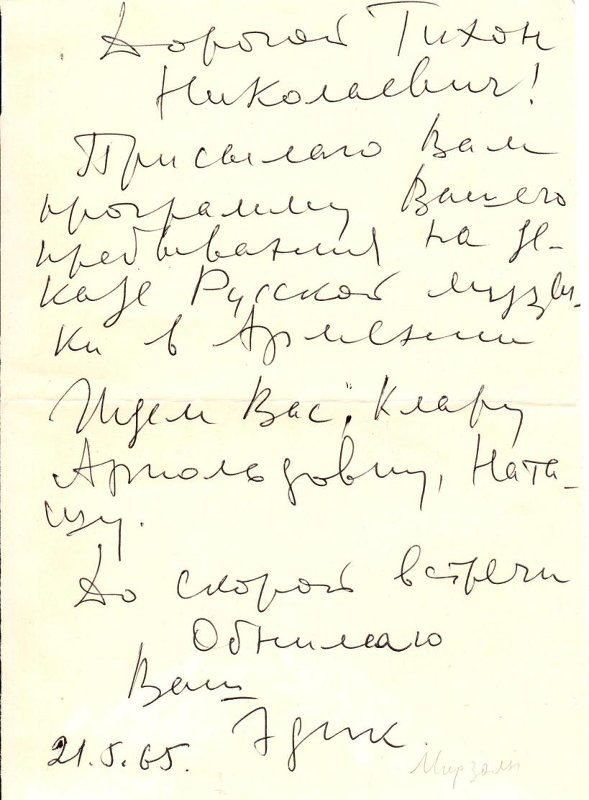 Дорогой Тихон
Николаевич!
Присылаю Вам
программу Вашего
пребывания на де-
каде Русской музы-
ки в Армении
Ждем Вас, Клару
Арнольдовну, Ната-
шу.
До скорой встречи
Обнимаю
Ваш
Эдик.
21.5.65.